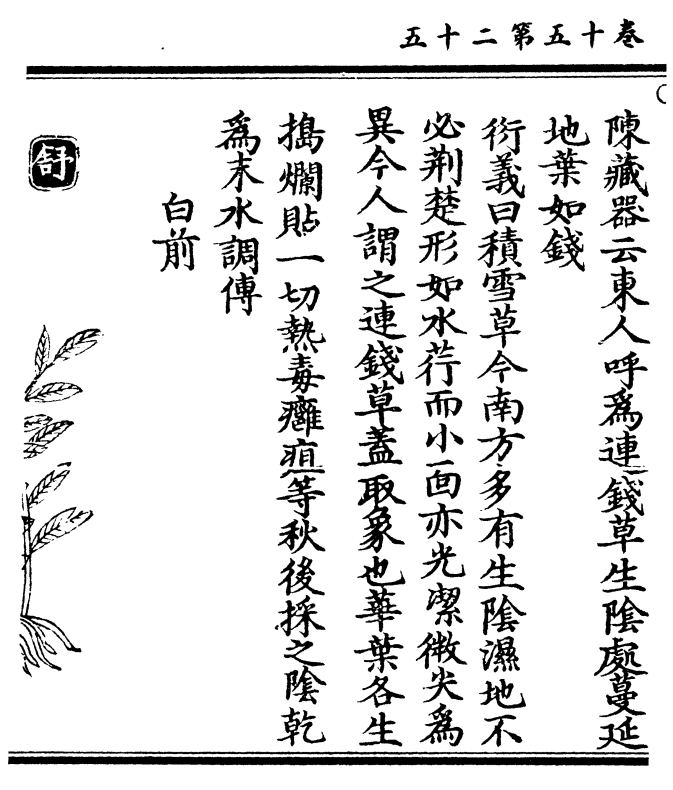 卷十五第二十五
陳藏器云東人呼爲連錢草生陰處蔓延
地葉如錢
衍義曰積雪草今南方多有生陰濕地不
必荆楚形如水荇而小面亦光潔微尖爲
異今人謂之連錢草蓋取象也華葉各生
搗爛貼一切熱毒癰疽等秋後採之陰乾
爲末水調傅
白前
舒